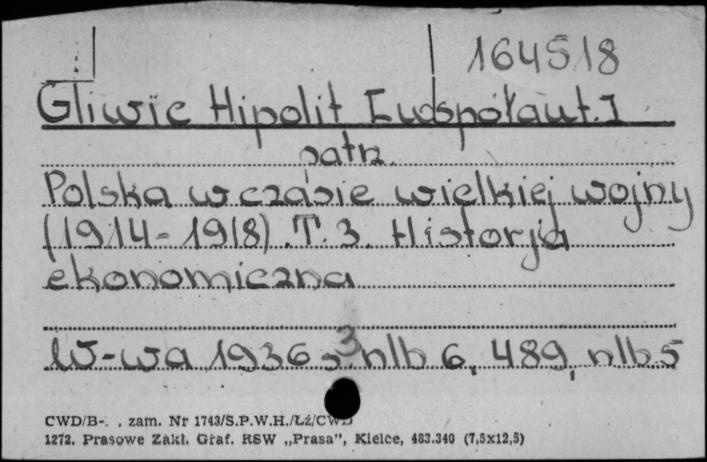 164518
Gliwic Hipolit [współaut.]
patrz
Polska w czasie wielkiej wojny
(1914-1918). T. 3. Historja
ekonomiczna
W-wa 1936 s. nlb 6, 489, nlb 5
3
CWD/B-. , zam. Nr 1743/S.P.W.H./Łź/CWD
1272. Prasowe Zakł. Graf. RSW „Prasa”, Kielce, 483.340 (7,5x12,5)